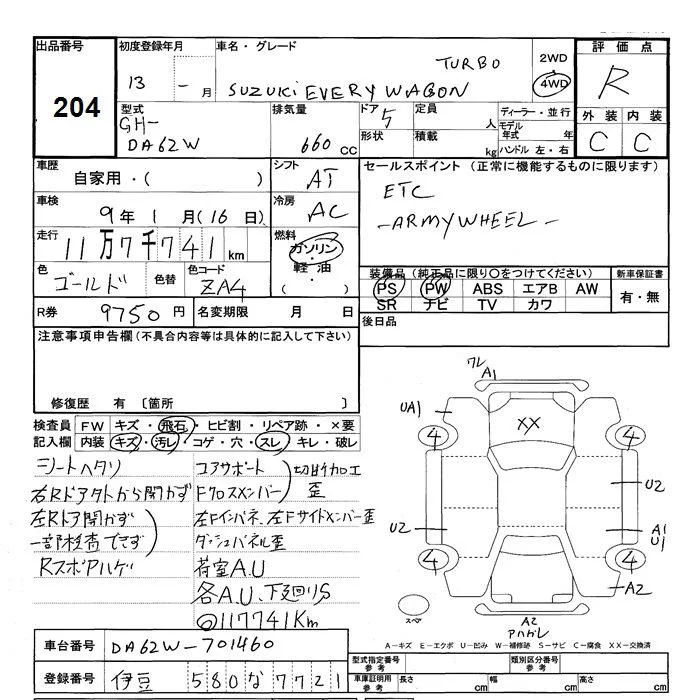 出品番号
204
初度登録年月
13 - 月
車名・グレード
TURBO
SUZUKI EVERY WAGON
2WD
4WD
評価点
R
外装 内装
C C
型式
GH-
DA62W
排気量
660 CC
ドア
5
形状
定員
人
積載
kg
ディーラー・並行
モデル年式 年
ハンドル 左・右
車歴
自家用・( )
シフト
AT
セールスポイント(正常に機能するものに限ります)
ETC
-ARMY WHEEL-
車検
9年 1月(16日)
冷房
AC
走行
11万7千741km
燃料
ガソリン・
軽油・
( )
色
ゴールド
色替
色コード
ZA4
装備品(純正品に限り○をつけてください)
PS PW ABS エアB AW
SR ナビ TV カワ
新車保証書
有・無
R券
9750円
名変期限 月 日
後日品
注意事項申告欄(不具合内容等は具体的に記入して下さい)
修復歴 有 〔箇所 〕
検査員記入欄
FW キズ・飛石・ヒビ割・リペア跡・×要
内装 キズ・汚レ・コゲ・穴・スレ・キレ・破レ
シートヘタリ
右Rドア外から開かず
左Rドア開かず
一部検査できず
Rスポアハゲ
コアサポート
Fクロスメンバー
切断加工
歪
左Fインパネ、左Fサイドメンバー歪
ダッシュパネル歪
荷室A.U
各A.U、下廻りS
@117741Km
ワレ
A1
UA1
XX
4 4
U2
U2
A1
U1
4 4
A2
スペア
A2
アハガレ
A-キズ E-エクボ U-凹み W-補修跡 S-サビ C-腐食 XX-交換済
車台番号
DA62W-701460
登録番号
伊豆 580 な 7721
型式指定番号
参考
類別区分番号
参考
車庫証明用
参考
長さ cm
幅 cm
高さ cm